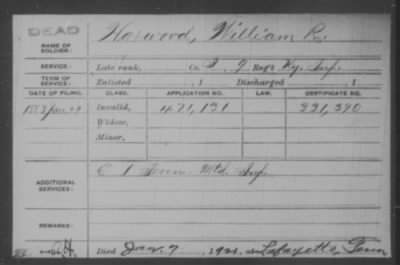 DEAD
NAME OF SOLDIER: Harwood, William R.
SERVICE: Late rank, Co. I, 9 Reg't Ky. Inf.
TERM OF SERVICE: Enlisted , 1 Discharged , 1
DATE OF FILING. CLASS. APPLICATION NO. LAW. CERTIFICATE NO.
1883 Jan. Invalid, 471,131 331,390
Widow,
Minor,
ADDITIONAL SERVICES: E 1 Tenn. Mtd. Inf.
REMARKS:
Died Jan. 7, 1921, at Lafayette, Tenn